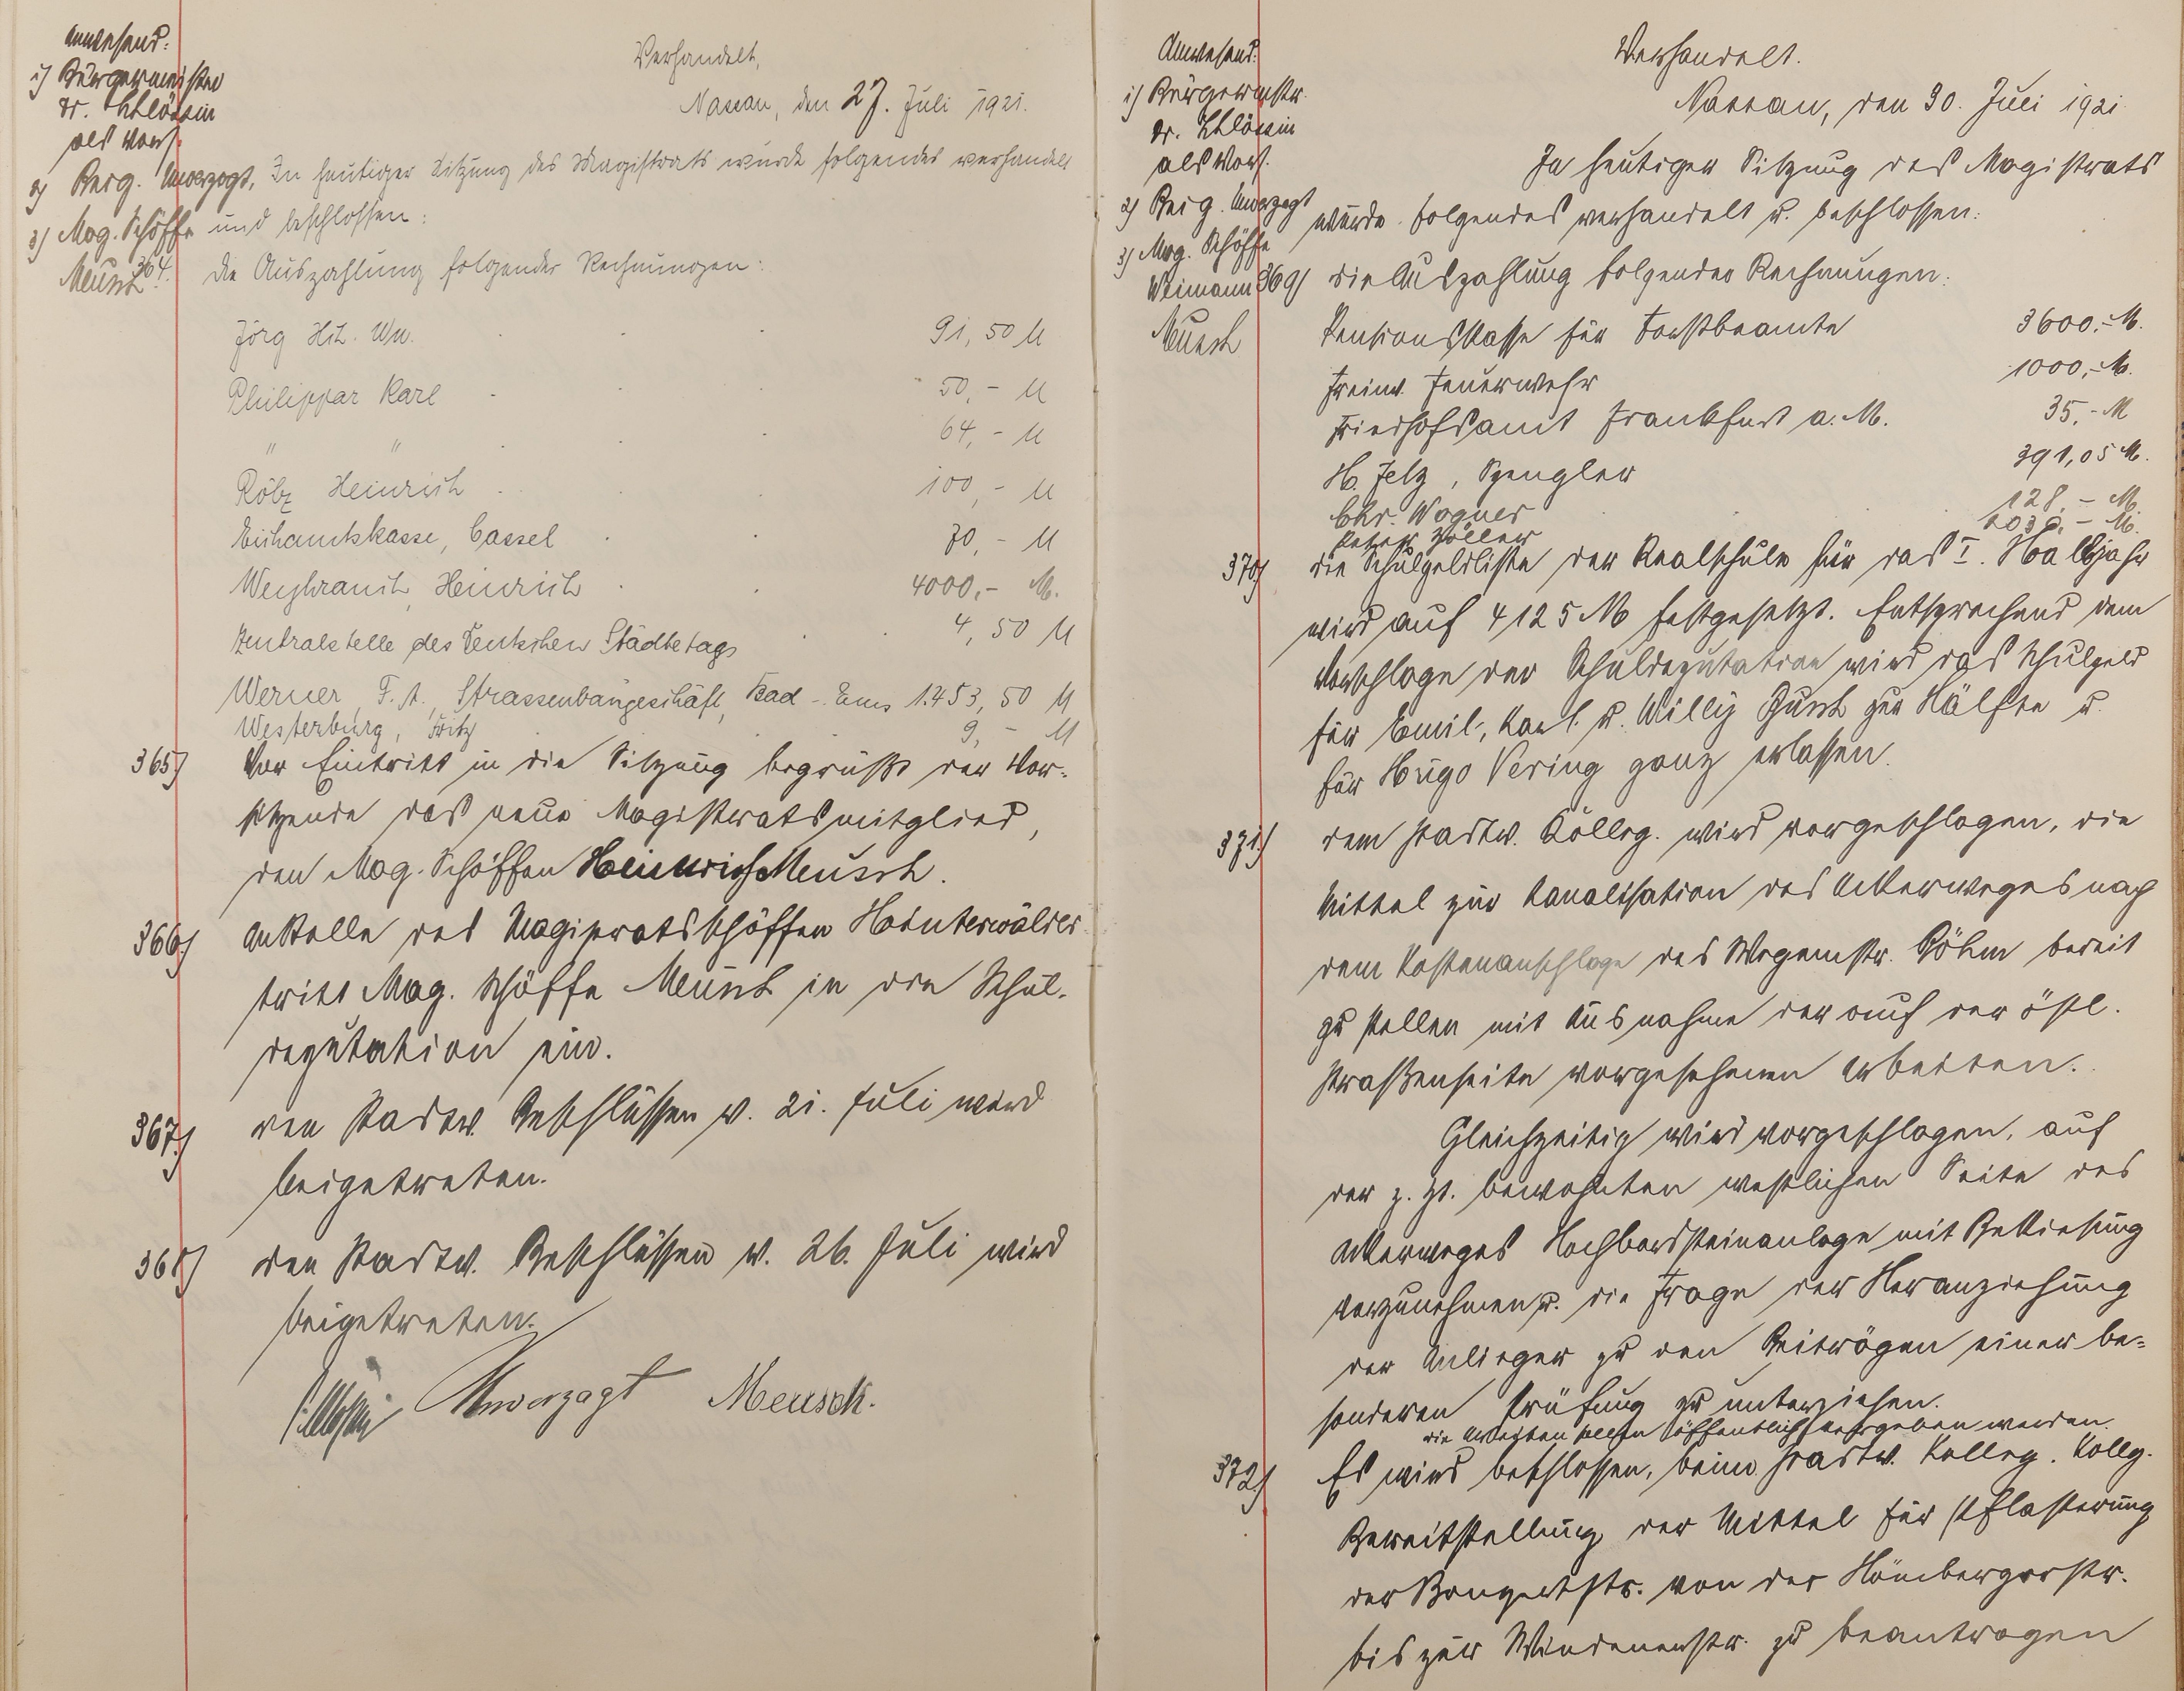 Anwesend:
1) Bürgermeister
Dr. Schlössin
als Vors.
2) Beig. Unverzagt
3) Mag. Schöffe
Meusch
Verhandelt,
Nassau, den 27. Juli 1921.
In heutiger Sitzung des Magistrats wurde folgendes verhandelt
und beschlossen:
364. Die Auszahlung folgender Rechnungen:
Jörg Hch. Wn. 91,50 M
Philippar Karl 50,- M
" " 64,- M
Heinrich 100,- M
Eichamtskasse, Cassel 70,- M
Weyhrauch, Heinrich 4000,- M.
Zentralstelle des Deutschen Städtetags 4,50 M
Werner, F. A. Strassenbaugeschäft, Bad-Ems 1453,50 M
Westerburg, Fritz 9,- M
365) Vor Eintritt in die Sitzung begrüßt der Vor-
sitzende das neue Magistratsmitglied,
den Mag. Schöffen Heinrich Meusch.
366) Anstelle des Magistratsschöffen Hinterwälder
tritt Mag. Schöffe Meusch in die Schul-
deputation ein.
367) den Stadtv. Beschlüssen v. 21. Juli wird
beigetreten.
368) den Stadtv. Beschlüssen v. 26. Juli wird
beigetreten.
Unverzagt Meusch.
Anwesend:
1) Bürgermstr.
Dr. Schlössin
als Vors.
2) Beig. Unverzagt
3) Mag. Schöffe
Weimann
Meusch
Verhandelt.
Nassau, den 30. Juli 1921
In heutiger Sitzung des Magistrats
wurde folgendes verhandelt u. beschlossen:
369) die Auszahlung folgender Rechnungen:
Pensionskasse für Forstbeamte 3600,- M.
Freiw. Feuerwehr 1000,- M.
Friedhofsamt Frankfurt a. M. 35,- M
H. Jelz, Spengler 391,05 M.
Chr. Wagner 128,- M.
Peter Zöller M.
370) die Schulgeldliste der Realschule für das I. Halbjahr
wird auf 4125 M festgesetzt. Entsprechend dem
Vorschlage der Schuldeputation wird das Schulgeld
für Emil, Karl u. Willy zur Hälfte u.
für Hugo Vering ganz erlassen.
371) dem Stadtv. Kolleg. wird vorgeschlagen, die
Mittel zur Kanalisation des Ackerweges nach
dem Kostenanschlage des Wegemstr. Böhm bereit
zu stellen mit Ausnahme der auf der östl.
Straßenseite vorgesehenen Arbeiten.
Gleichzeitig wird vorgeschlagen, auf
der z. Zt. bewohnten westlichen Seite des
Ackerweges Hochbordsteinanlage mit Bekiesung
vorzunehmen u. die Frage der Heranziehung
der Anlieger zu den Beiträgen einer be-
sonderen Prüfung zu unterziehen.
die Arbeiten sollen öffentlich vergeben werden.
372) Es wird beschlossen, beim Stadtv. Kolleg.
Bereitstellung der Mittel für Pflasterung
der Bongertstr. von der Hömbergerstr.
bis zur Windenerstr. zu beantragen